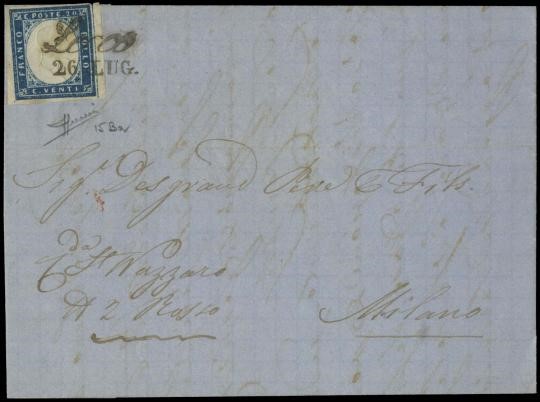 C. POSTE 20
FRANCO
BOLLO
C. VENTI
Lecco
26 LUG.
15 Ba
Sig.ri Desgrand Père & Fils.
C.da S.t Nazzaro
N 2 Rosso
Milano